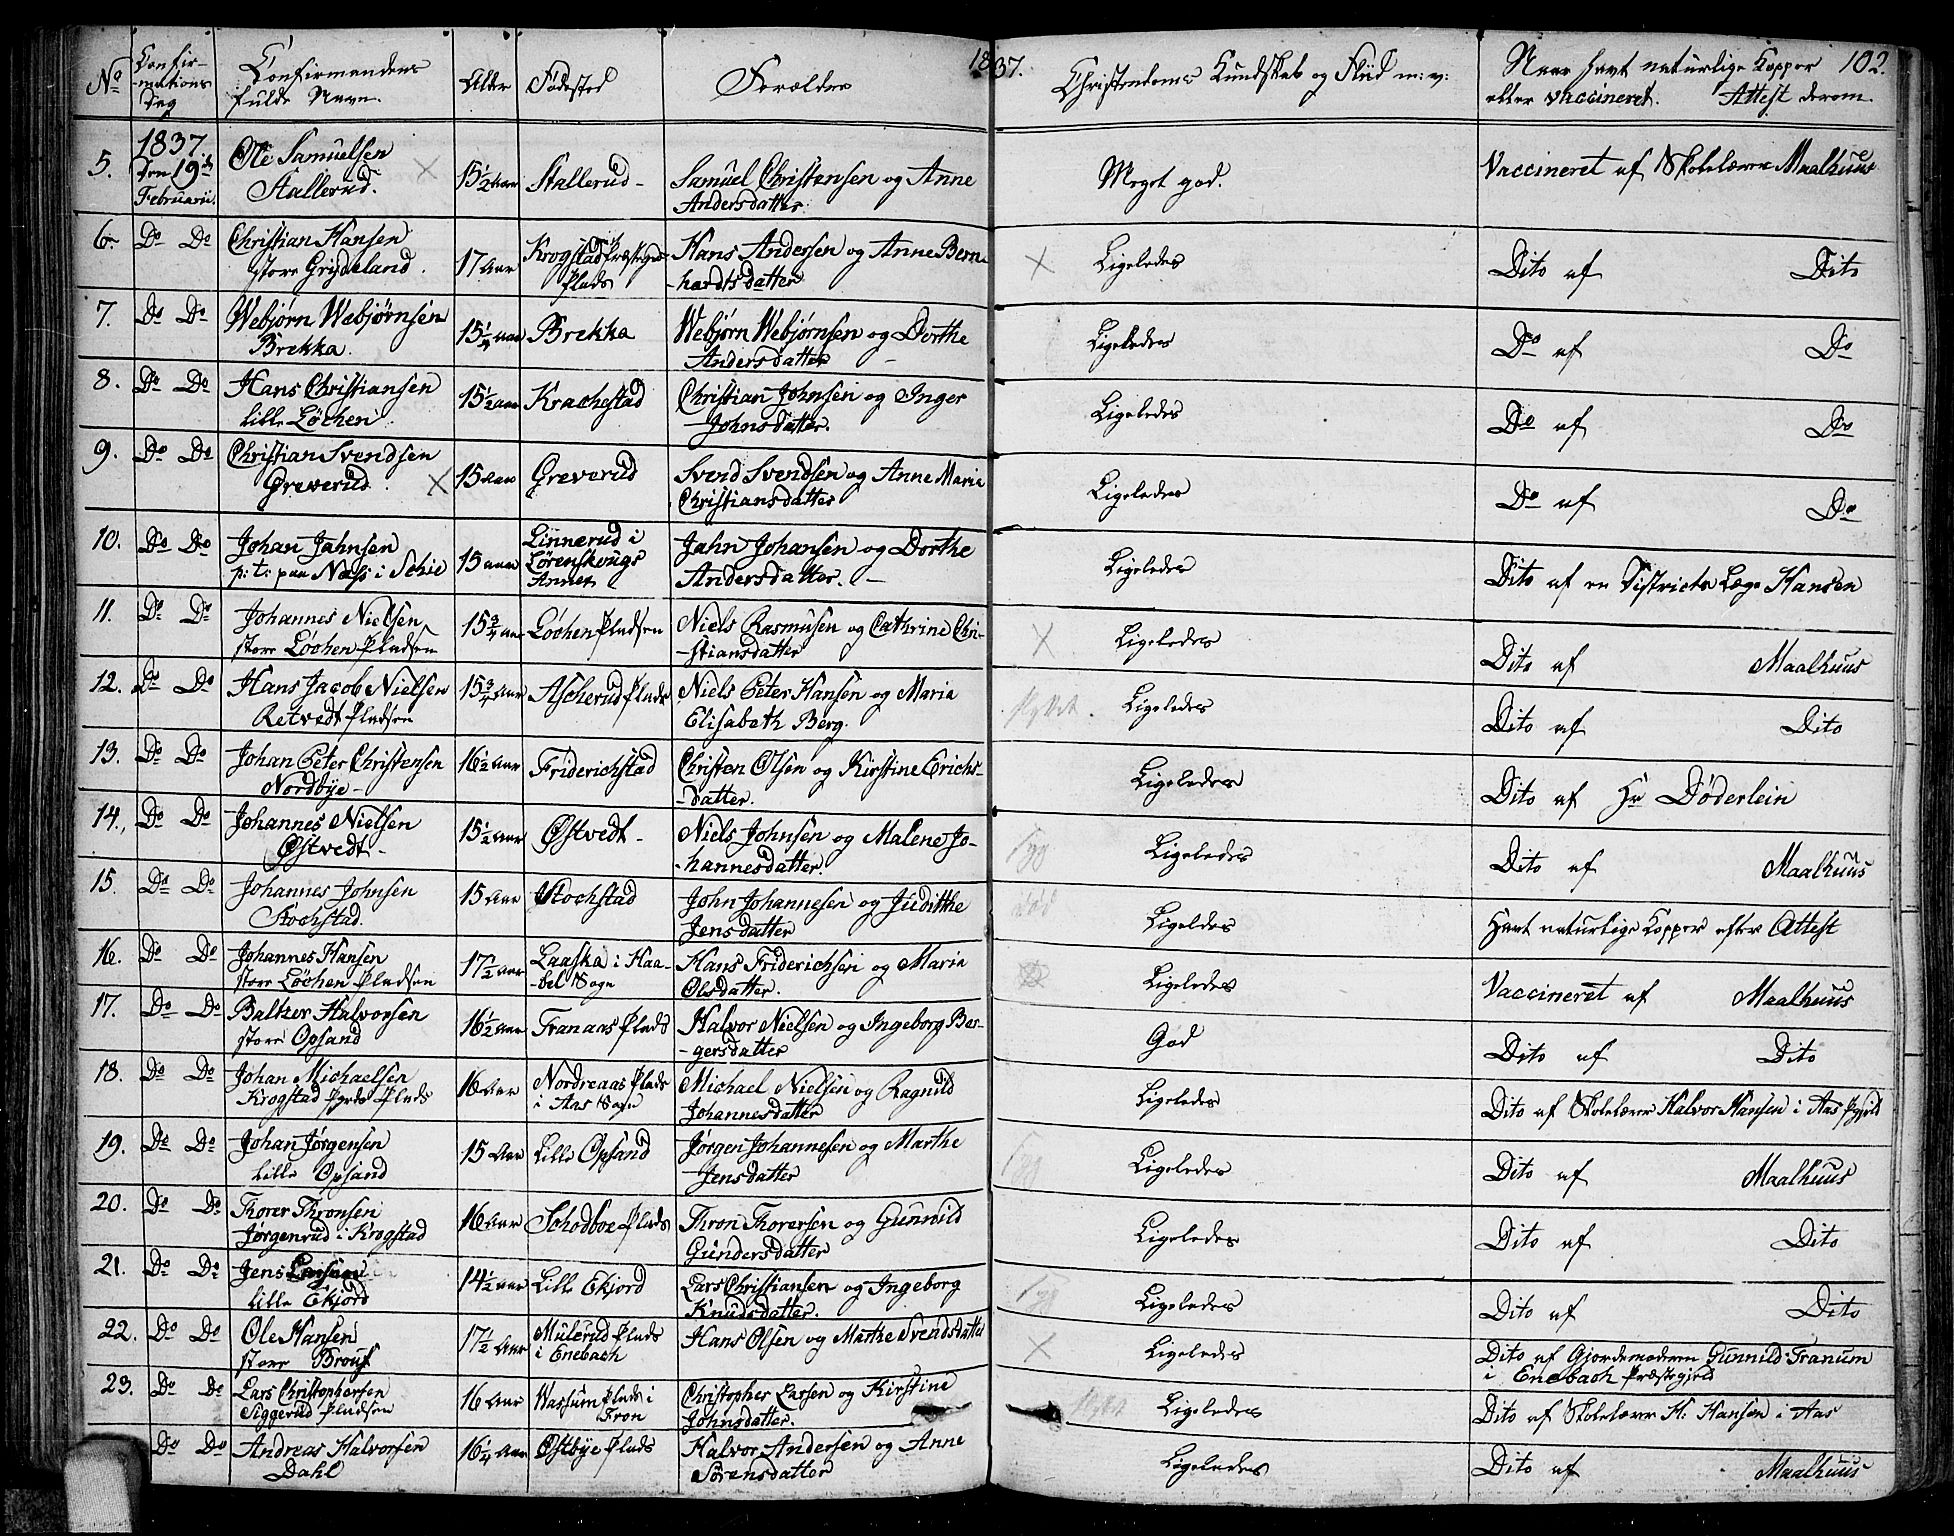 1837. 102.
No Confir-mations Dag Confirmandens fulde Navn. Alder Fødested Forældre Christendoms Kundskab og Flid m: v: Naar havt naturlige Kopper eller vaccineret. Attest derom.
5. 1837 Den 19de Februarii. Ole Samuelsen Stallerud. × 15 1/2 Aar Stallerud - Samuel Christensen og Anne Andersdatter. Meget god. Vaccineret af Skolelærer Maalhuus
6. Do Do Christian Hansen store Grydeland. 17 Aar Krogstad Plads Hans Andersen og Anne Bern-hardtsdatter × Ligeledes Dito af Dito
7. Do Do Webjørn Webjørnsen Brekka. 15 1/4 Aar Brekka Webjørn Webjørnsen og Dorthe Andersdatter - Ligeledes Do af Do
8. Do Do Hans Christiansen lille Løchen 15 1/2 Aar Krachestad Christian Johnsen og Inger Johnsdatter. Ligeledes Do af Do
9. Do Do Christian Svendsen Greverud. × 15 Aar Greverud Svend Svendsen og Anne Maria Christiansdatter Ligeledes Do af Do
10. Do Do Johan Jahnsen p: t: paa Næss i Schie 15 Aar Linnerud i Lørenskougs Annex Jahn Johansen og Dorthe Andersdatter. - Ligeledes Dito af en Districts Læge Hansen
11. Do Do Johannes Nielsen store Løchen Pladsen 15 3/4 Aar Løchen Pladsen Niels Rasmusen og Cathrine Chri-stiansdatter × Ligeledes Dito af Maalhuus
12. Do Do Hans Jacob Nielsen Retvedt Pladsen 15 3/4 Aar Ascherud Plads Niels Peter Hansen og Maria Elisabeth Berg. flyttet. Ligeledes Dito af Dito
13. Do Do Johan Peter Christensen Nordbye - 16 1/2 Aar Friderichstad Christen Olsen og Kirstine Erichs-datter. Ligeledes Dito af Hr Døderlein
14. Do Do Johannes Nielsen Østvedt - 15 1/2 Aar Østvedt - Niels Johnsen og Malene Jo-hannesdatter. Ligeledes Dito af Maalhuus
15. Do Do Johannes Johnsen Stochstad. 15 Aar Stochstad John Johannesen og Juditthe Jensdatter død Ligeldes Havt naturlige Kopper efter Attest
16. Do Do Johannes Hansen store Løchen Pladsen 17 1/2 Aar Laaska i Haa-bel Sogn Hans Friderichsen og Maria Olsdatter. Ligeledes Vaccineret af Maalhuus
17. Do Do Balker Halvorsen store Opsand 16 1/2 Aar Franaas Plads Halvor Nielsen og Ingeborg Ber-gersdatter God Dito af Dito
18. Do Do Johan Michaelsen Krogstad Plads 16 Aar Nordreaas Plads i Aas Sogn Michael Nielsen og Ragnild Johannesdatter Ligeledes Dito af Skolelærer Halvor Hansen i Aas Pgjeld
19. Do Do Johan Jørgensen Lille Opsand 15 Aar Lille Opsand Jørgen Johannesen og Marthe Jensdatter Ligeledes Dito af Maalhuus
20. Do Do Thorer Thronsen Jørgenrud i Krogstad 16 Aar Schodboe Plads Thron Thorersen og Gunnild Gundersdatter Ligeledes Dito af Dito
21. Do Do Jens Larsen lille Ekjord 14 1/2 Aar Lille Ekjord Lars Christiansen og Ingeborg Knudsdatter. Ligeledes Dito af Dito
22. Do Do Ole Hansen store Brouf 17 1/2 Aar Mulerud Plads i Enebach Hans Olsen og Marthe Svendsdatter × Ligeledes Dito af Gjordemoderen Gunnild Tranum i Enebach Præstegjeld
23. Do Do Lars Christophersen Siggerud Pladsen 16 Aar Wassum Plads i Fron Christopher Larsen og Kirstine Johnsdatter. flyttet Ligeledes Dito af Skolelærer H: Hansen i Aas
Do Do Andreas Halvorsen Dahl 16 1/4 Aar Østbye Plads Halvor Andersen og Anne Sørensdatter Ligeledes Dito af Maalhuus